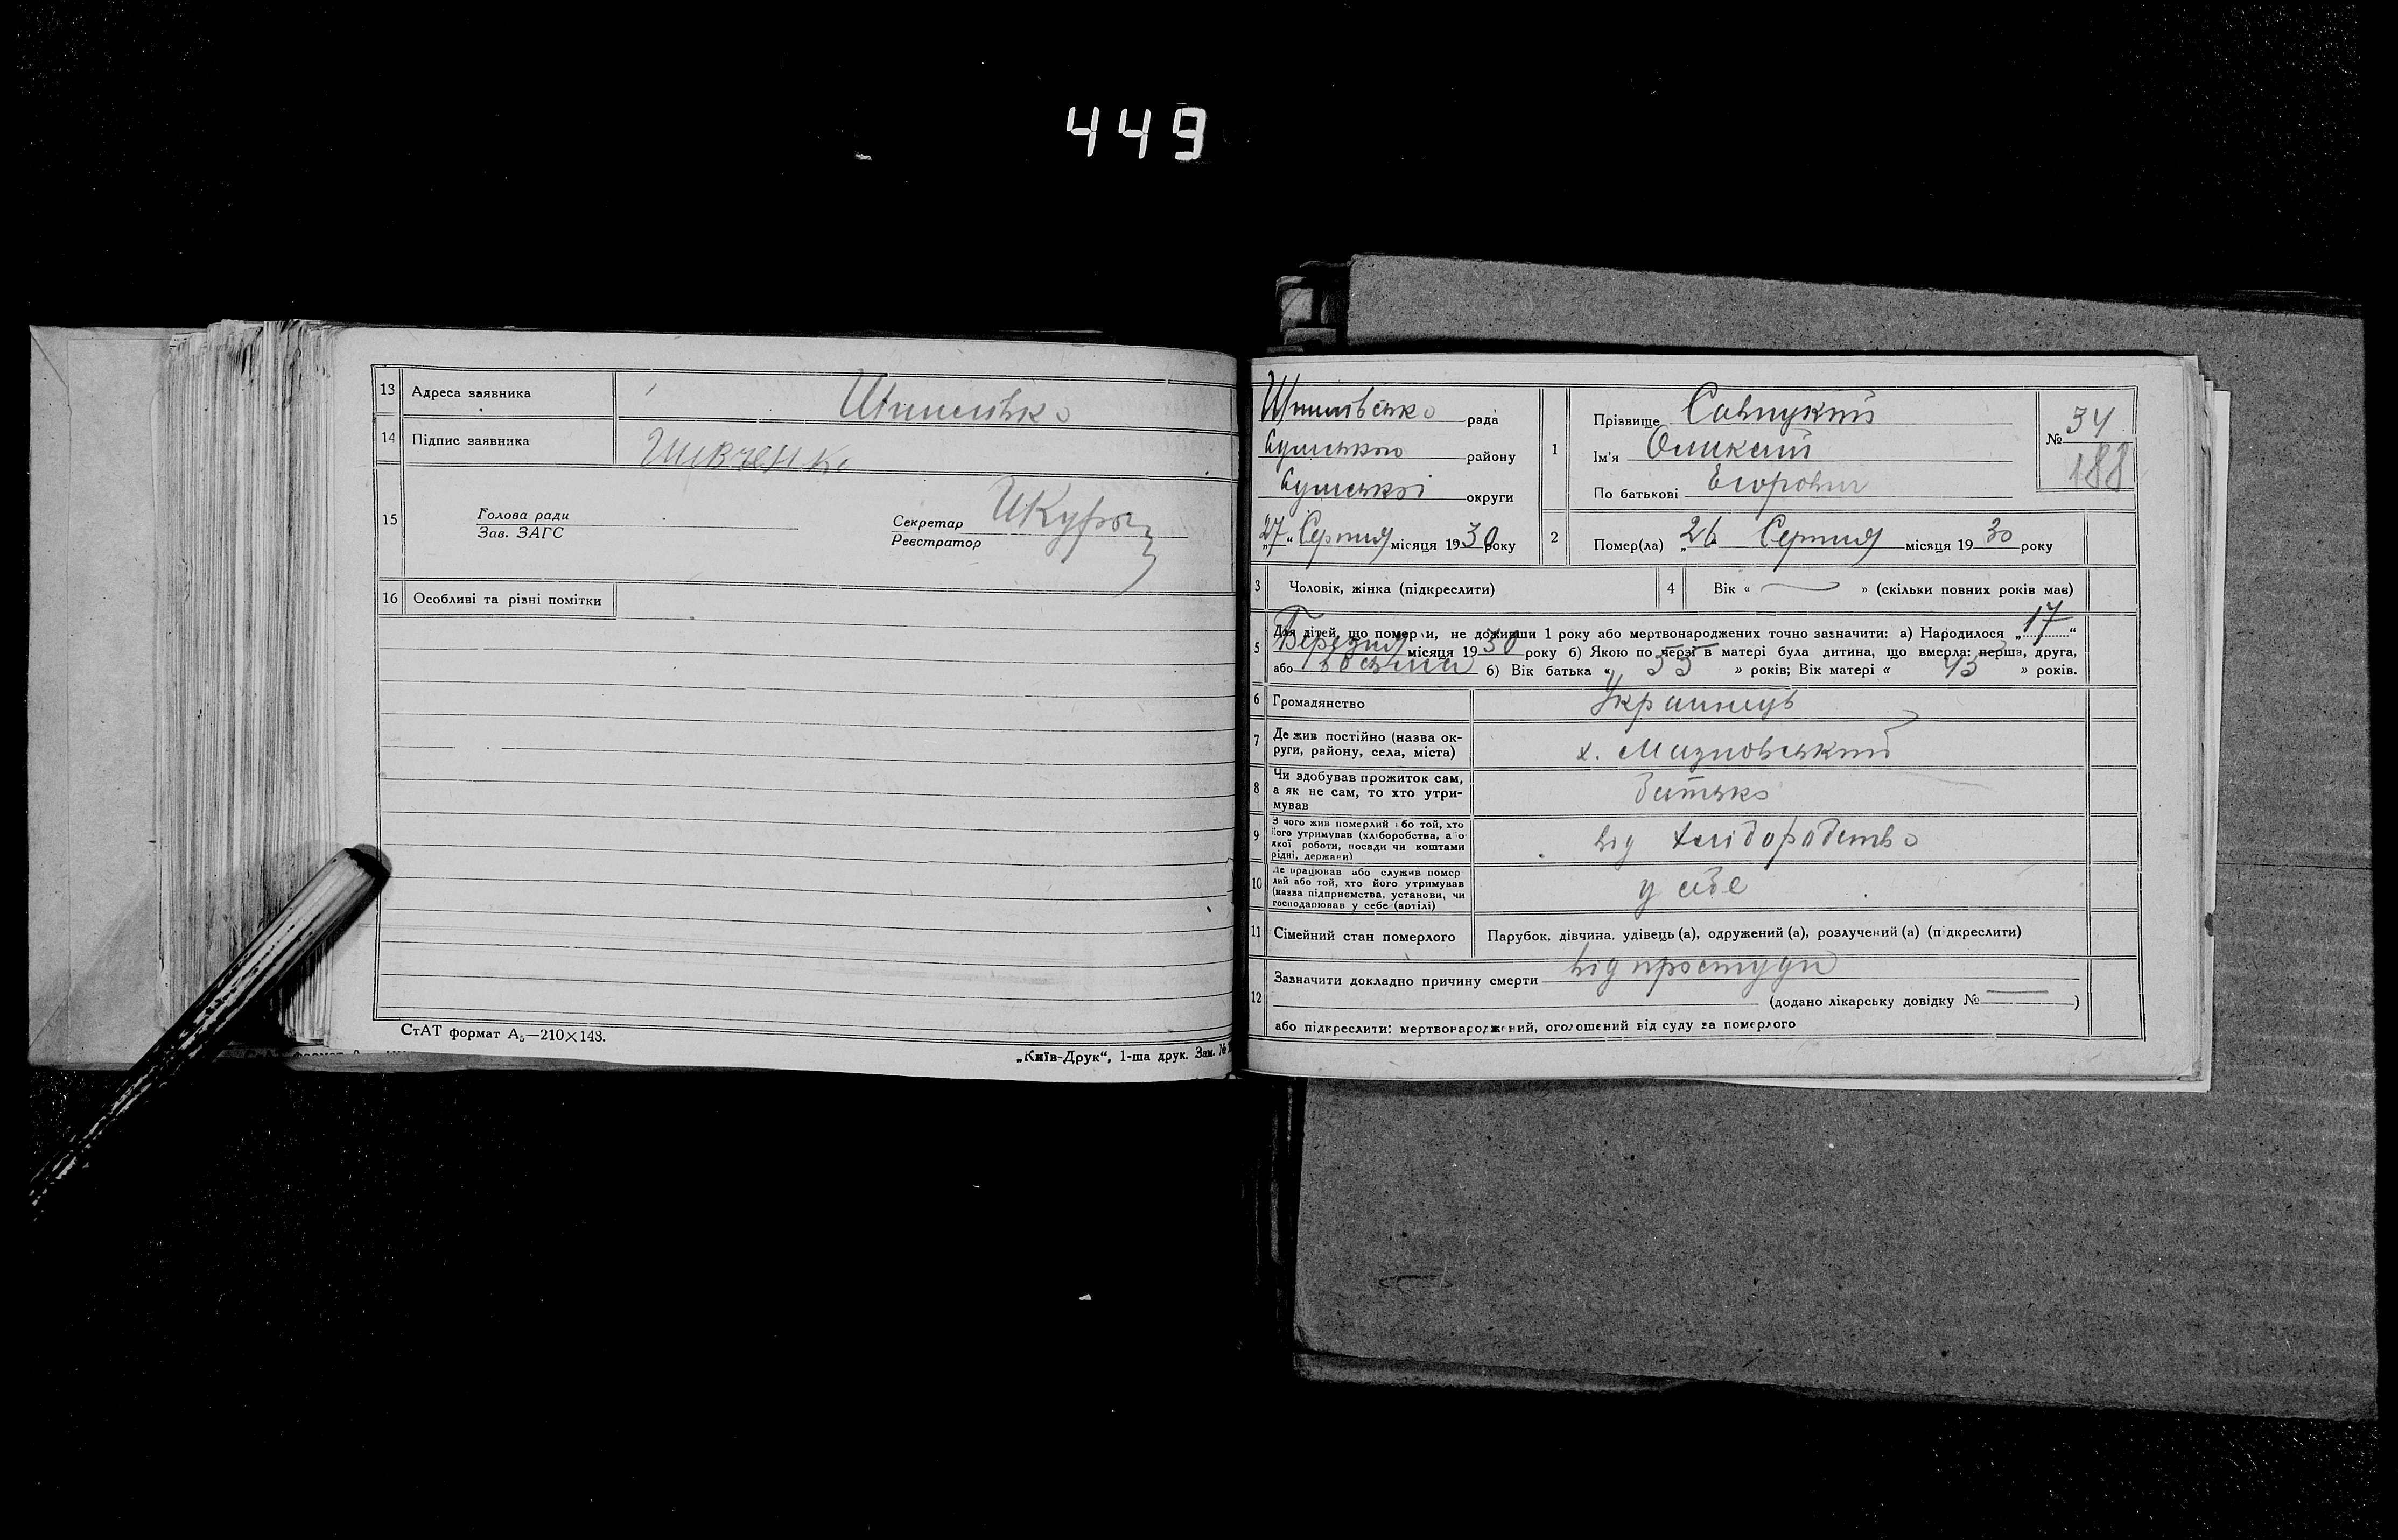 449
13 Адреса заявника
14 Підпис заявника Шивченк
15 Голова ради
Зав. ЗАГС
Секретар
Реєстратор
16 Особливі та різні помітки
СтАТ формат А₅—210×148.
„Київ-Друк“, 1-ша друк. Зам. №
рада
району
Сумської округи
„27“ Серпня місяця 1930 року
1 Прізвище Савицкий
Ім'я Олексій
По батькові Егорович
№ 34
188
2 Помер(ла) „26 Серпня місяця 1930 року
3 Чоловік, жінка (підкреслити)
4 Вік « — » (скільки повних років має)
5 Для дітей, що померли, не доживши 1 року або мертвонароджених точно зазначити: а) Народилося „17“
Березня місяця 1930 року б) Якою по черзі в матері була дитина, що вмерла: перша, друга,
або восьма б) Вік батька « 53 » років; Вік матері « 43 » років.
6 Громадянство Украинець
7 Де жив постійно (назва ок-
руги, району, села, міста)
х.
8 Чи здобував прожиток сам,
а як не сам, то хто утри-
мував
батько
9 З чого жив померлий або той, хто
його утримував (хліборобства, або
якої роботи, посади чи коштами
рідні, держави)
від хліборобства
10 Де працював або служив помер
лий або той, хто його утримував
(назва підприємства, установи, чи
господарював у себе (артілі)
у себе
11 Сімейний стан померлого
Парубок, дівчина, удівець (а), одружений (а), розлучений (а) (підкреслити)
12 Зазначити докладно причину смерти від простуди
(додано лікарську довідку № — )
або підкреслити: мертвонароджений, оголошений від суду за померлого